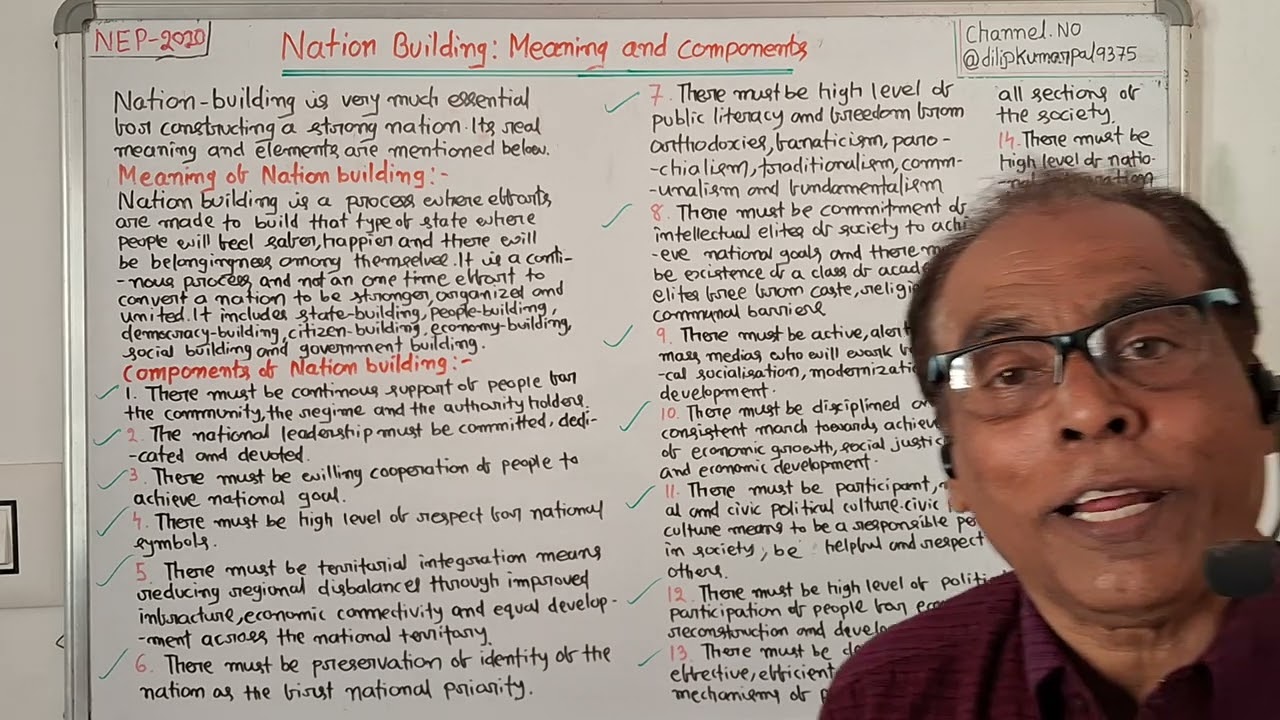 NEP-2020
Nation Building: Meaning and Components
Channel.NO
@dilipkumarpal9375
Nation-building is very much essential
for constructing a strong nation. Its real
meaning and elements are mentioned below.
Meaning of Nation building:-
Nation building is a process where efforts
are made to build that type of state where
people will feel safer, happier and there will
be belongingness among themselves. It is a conti-
-nous process and not an one time effort to
convert a nation to be stronger, organized and
united. It includes state-building, people-building,
democracy-building, citizen-building, economy-building,
social building and government building.
Components of Nation building:-
1. There must be continous support of people for
the community, the regime and the authority holders.
2. The national leadership must be committed, dedi-
-cated and devoted.
3. There must be willing cooperation of people to
achieve national goal.
4. There must be high level of respect for national
symbols.
5. There must be territorial integration means
reducing regional disbalances through improved
infracture, economic connectivity and equal develop-
-ment across the national territary.
6. There must be preservation of identity of the
nation as the first national priority.
7. There must be high level of
public literacy and freedom from
orthodoxies, fanaticism, paro-
-chialism, traditionalism, comm-
-unalism and fundamentalism
8. There must be commitment of
intellectual elites of society to achi
-eve national goals and there
be existence of a class of
elites free from caste,
communal barriers
9. There must be active,
mass medias who will work
-cal socialisation,
development.
10. There must be disciplined
consistent march towards
of economic growth, social
and economic development.
11. There must be participant,
al and civic political culture. civic
culture means to be a responsible
in society, be helpful and respect
others.
12. There must be high level of
participation of people for
reconstruction and
13. There must be
effective, efficient
mechanisms of
all sections of
the society.
14. There must be
high level of natio-